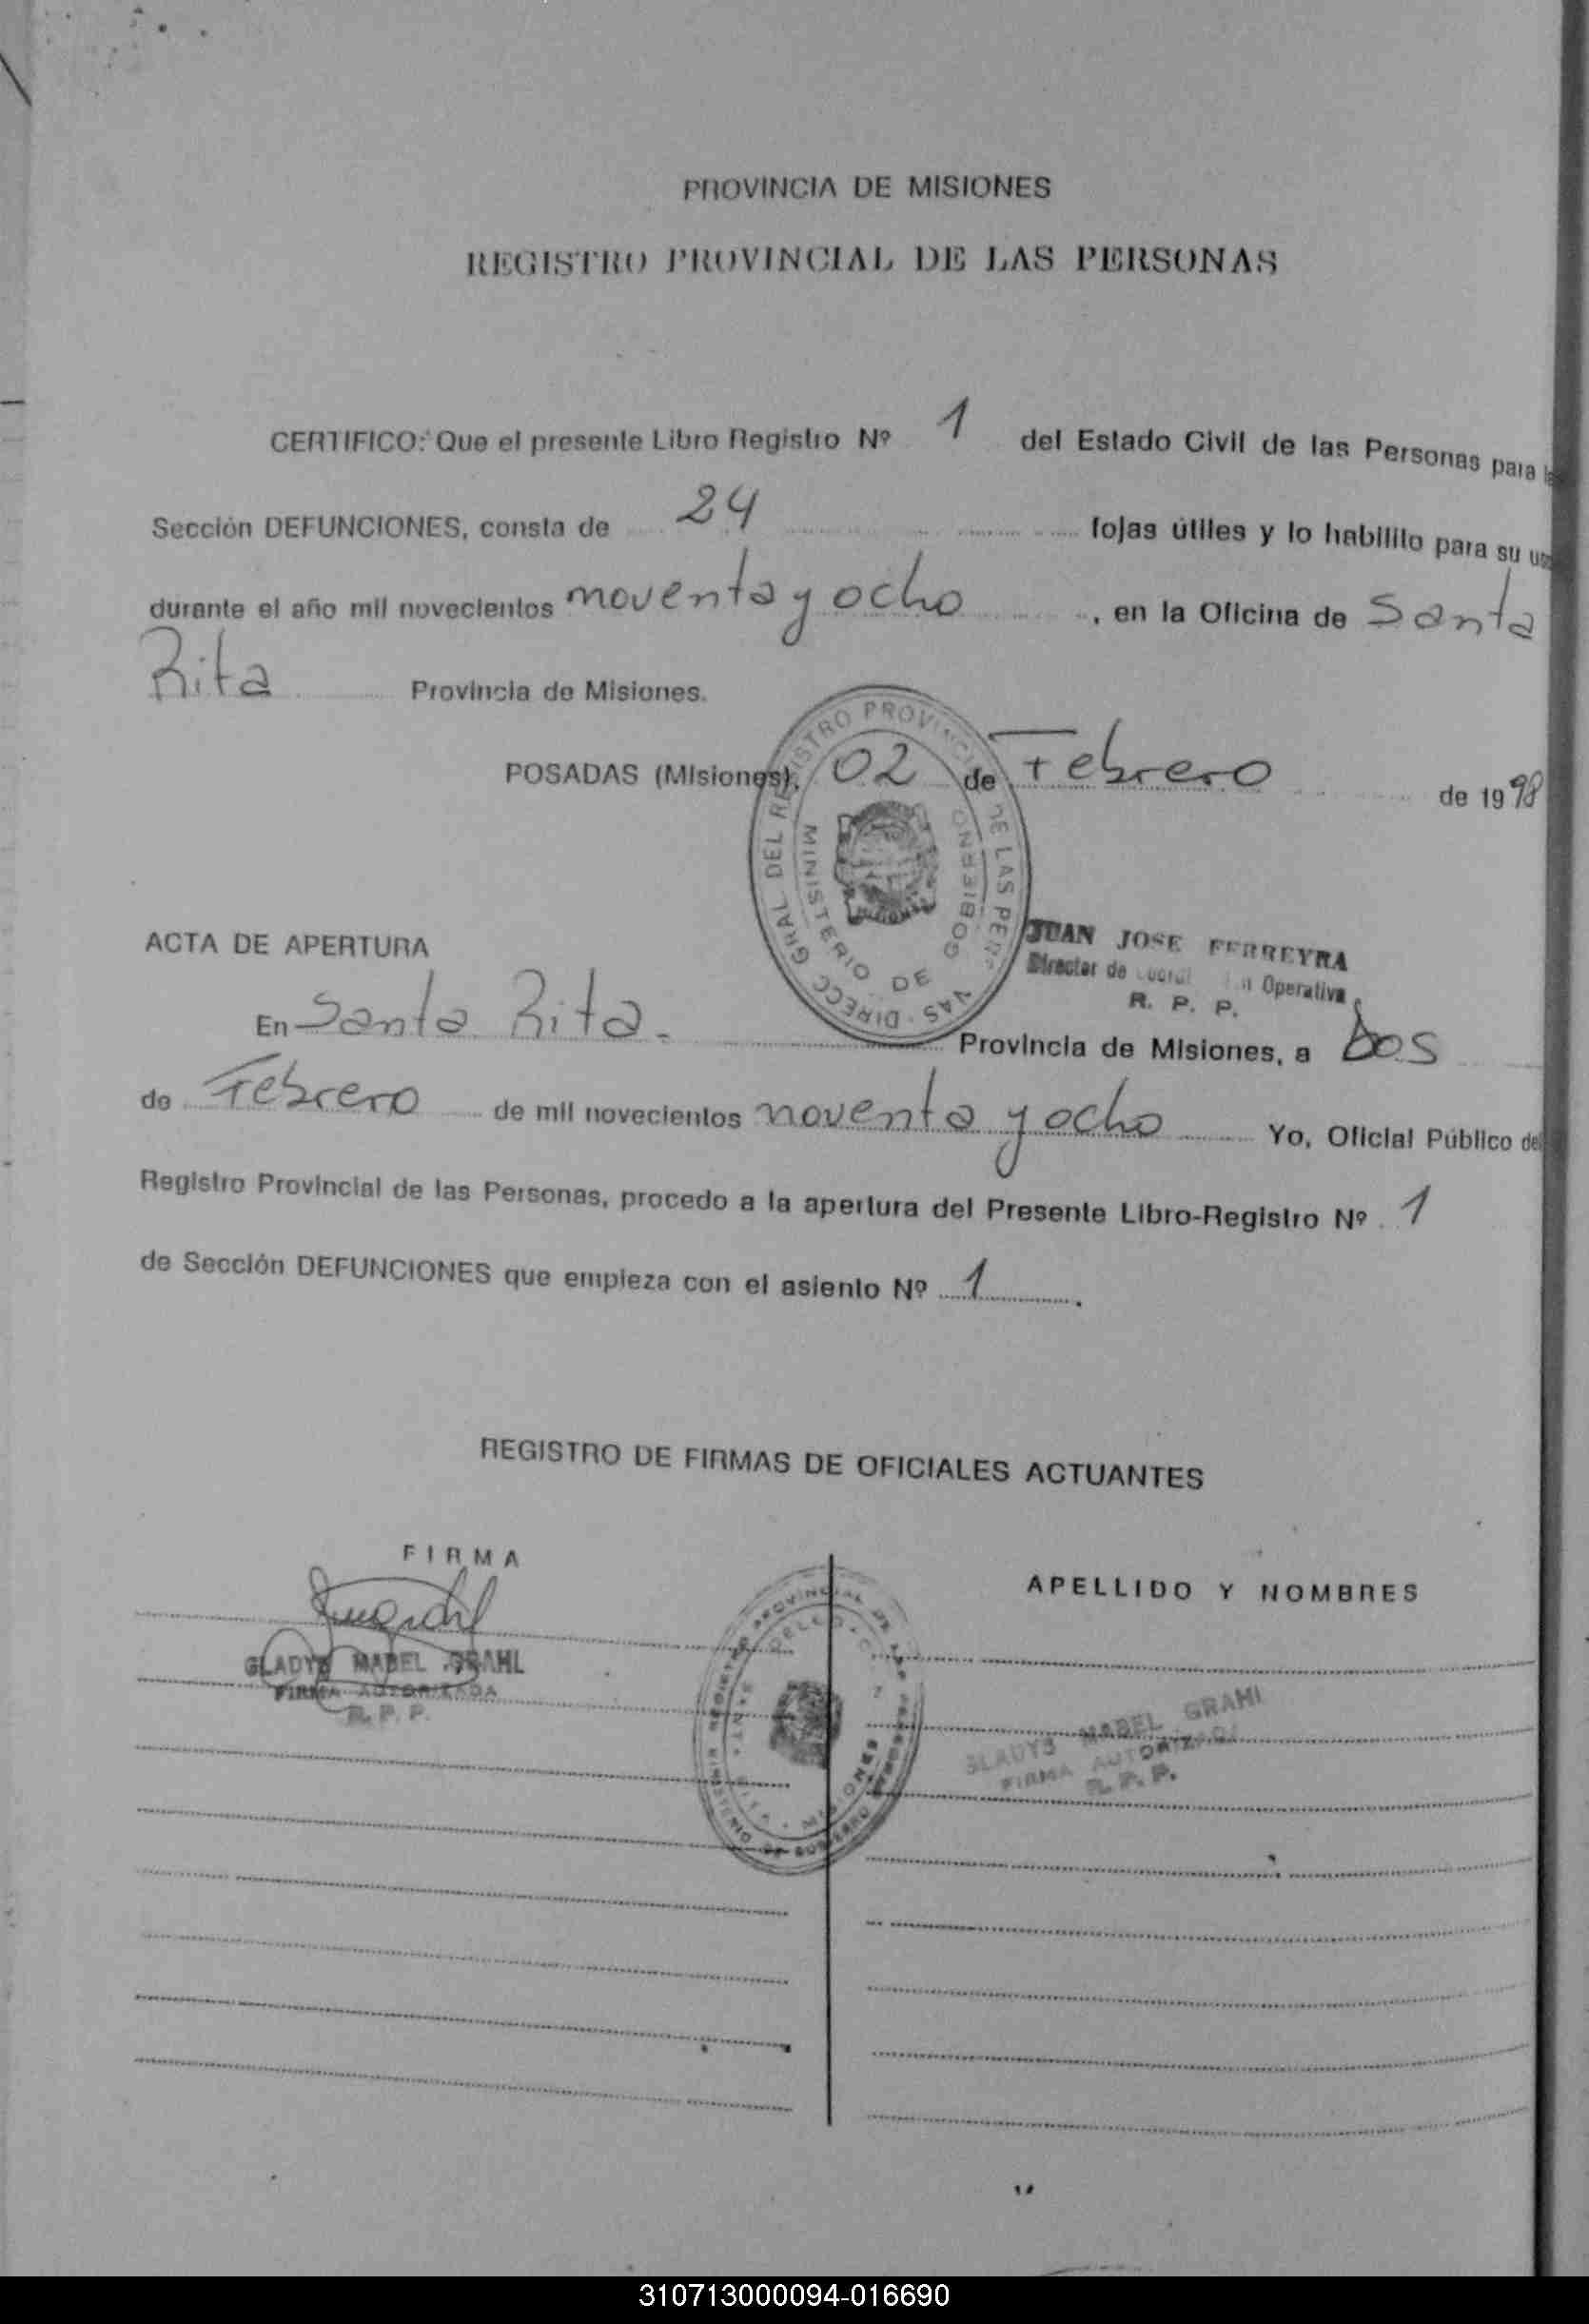 PROVINCIA DE MISIONES
REGISTRO PROVINCIAL DE LAS PERSONAS
CERTIFICO: Que el presente Libro Registro Nº 1 del Estado Civil de las Personas para la
Sección DEFUNCIONES, consta de 24 fojas útiles y lo habilito para su uso
durante el año mil novecientos noventa y ocho, en la Oficina de Santa
Rita Provincia de Misiones.
POSADAS (Misiones), 02 de Febrero de 1998
DIRECC. GRAL. DEL REGISTRO PROVINCIAL DE LAS PERS
MINISTERIO DE GOBIERNO
JUAN JOSE FERREYRA
Director de Operativa
R. P. P.
ACTA DE APERTURA
En Santa Rita. Provincia de Misiones, a Dos
de Febrero de mil novecientos noventa y ocho Yo, Oficial Público del
Registro Provincial de las Personas, procedo a la apertura del Presente Libro-Registro Nº 1
de Sección DEFUNCIONES que empieza con el asiento Nº 1.
REGISTRO DE FIRMAS DE OFICIALES ACTUANTES
FIRMA
APELLIDO Y NOMBRES
GLADYS MABEL GRAHL
FIRMA AUTORIZADA
R. P. P.
GLADYS MABEL GRAHL
FIRMA AUTORIZADA
R. P. P.
310713000094-016690